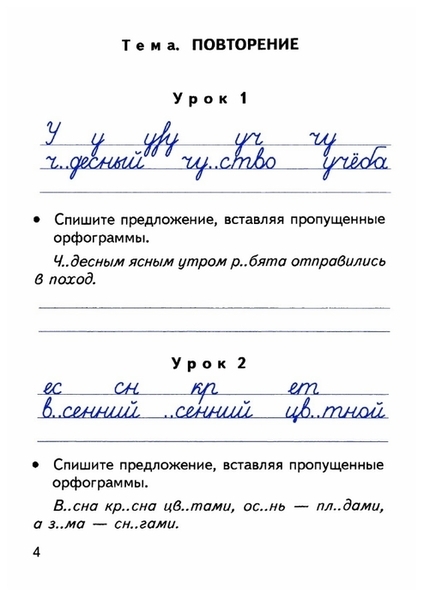 Тема. ПОВТОРЕНИЕ
Урок 1
У у уу уч чу
ч..десный чу..ство учёба
• Спишите предложение, вставляя пропущенные
орфограммы.
Ч..десным ясным утром р..бята отправились
в поход.
Урок 2
ес сн кр ет
в..сенний ..сенний цв..тной
• Спишите предложение, вставляя пропущенные
орфограммы.
В..сна кр..сна цв..тами, ос..нь — пл..дами,
а з..ма — сн..гами.
4